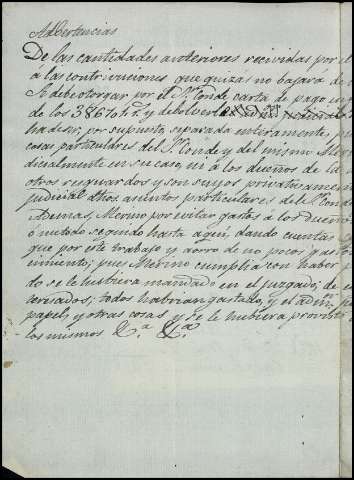 Advertencias
De las cantidades anteriores recividas por el
a las contrivuciones que quizas no bajará de
Se debe otorgar por el S. Conde carta de pago en
de los 3867 y debolver
ha de ser, por supuesto, separada enteramente, p
cosas particulares del S. Conde y del mismo Mer
dicialmente en su caso, ni á los dueños de la
otros resguardos y son suyos privatibamen
judicial dhos. asuntos particulares de el Conde
Ademas, Merino por evitar gastos á los Dueño
ó metodo seguido hasta aqui, dando cuentas
que por este trabajo y aorro de no pocos gastos
imiento; pues Merino cumplia con haber p
do se le hubiera mandado en el juzgado; de
teresados; todos habrian gastado, y el admor.
papel, y otras cosas y se le hubiera provisto
los mismos &a. &a.